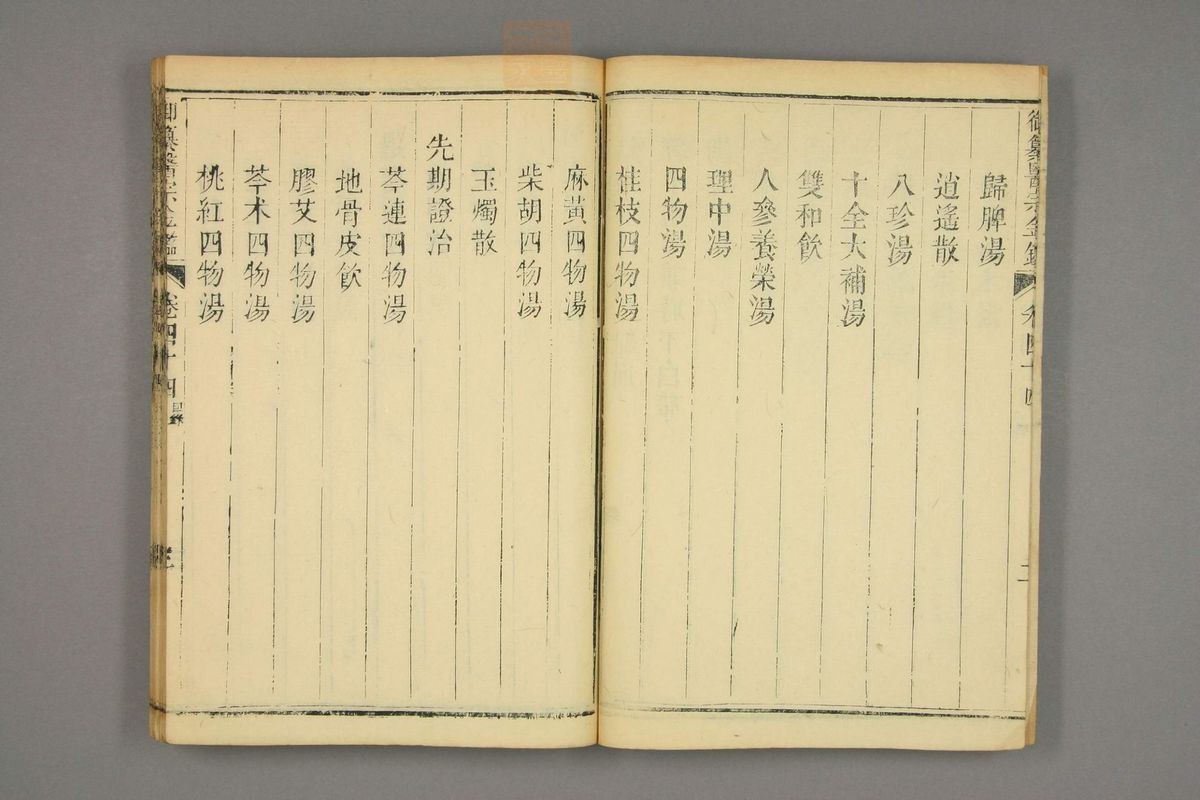 歸脾湯
逍遙散
八珍湯
十全大補湯
雙和飲
人參養榮湯
理中湯
四物湯
桂枝四物湯
麻黃四物湯
柴胡四物湯
玉燭散
先期證治
芩連四物湯
地骨皮飲
膠艾四物湯
芩术四物湯
桃紅四物湯
御纂醫宗金鑑
卷四十四
目錄